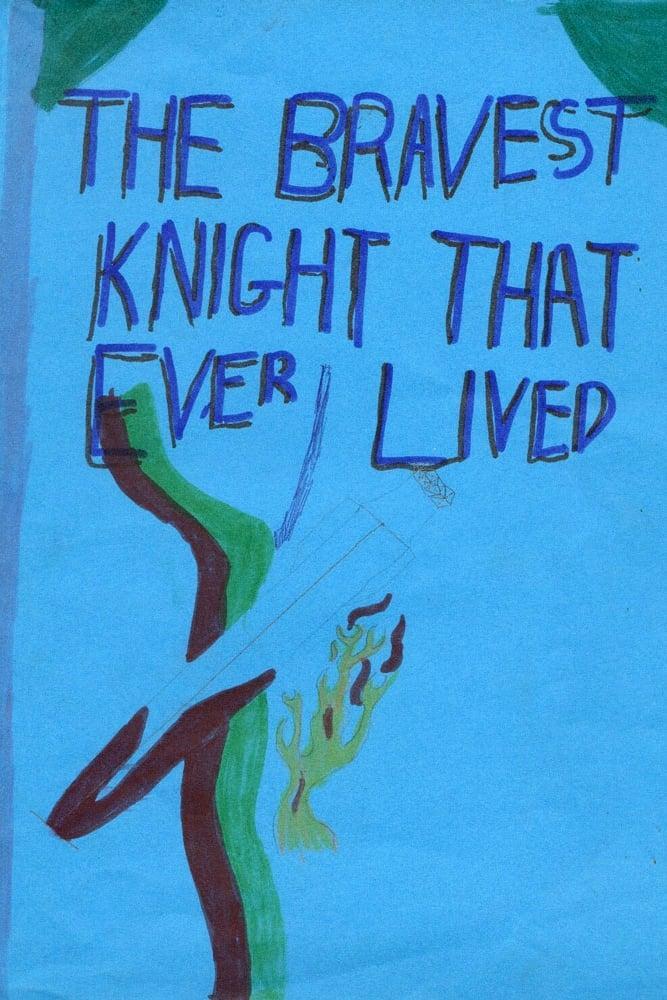 THE BRAVEST
KNIGHT THAT
EVER LIVED